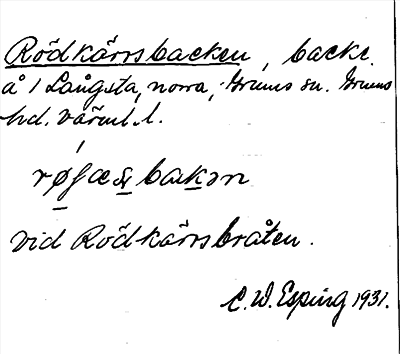 Rödkärrsbacken, backe.
å 1 Långsta, norra, Grums sn. Grums
hd. Värml. l.
vid Rödkärrsbråten.
C. W. Esping 1931.